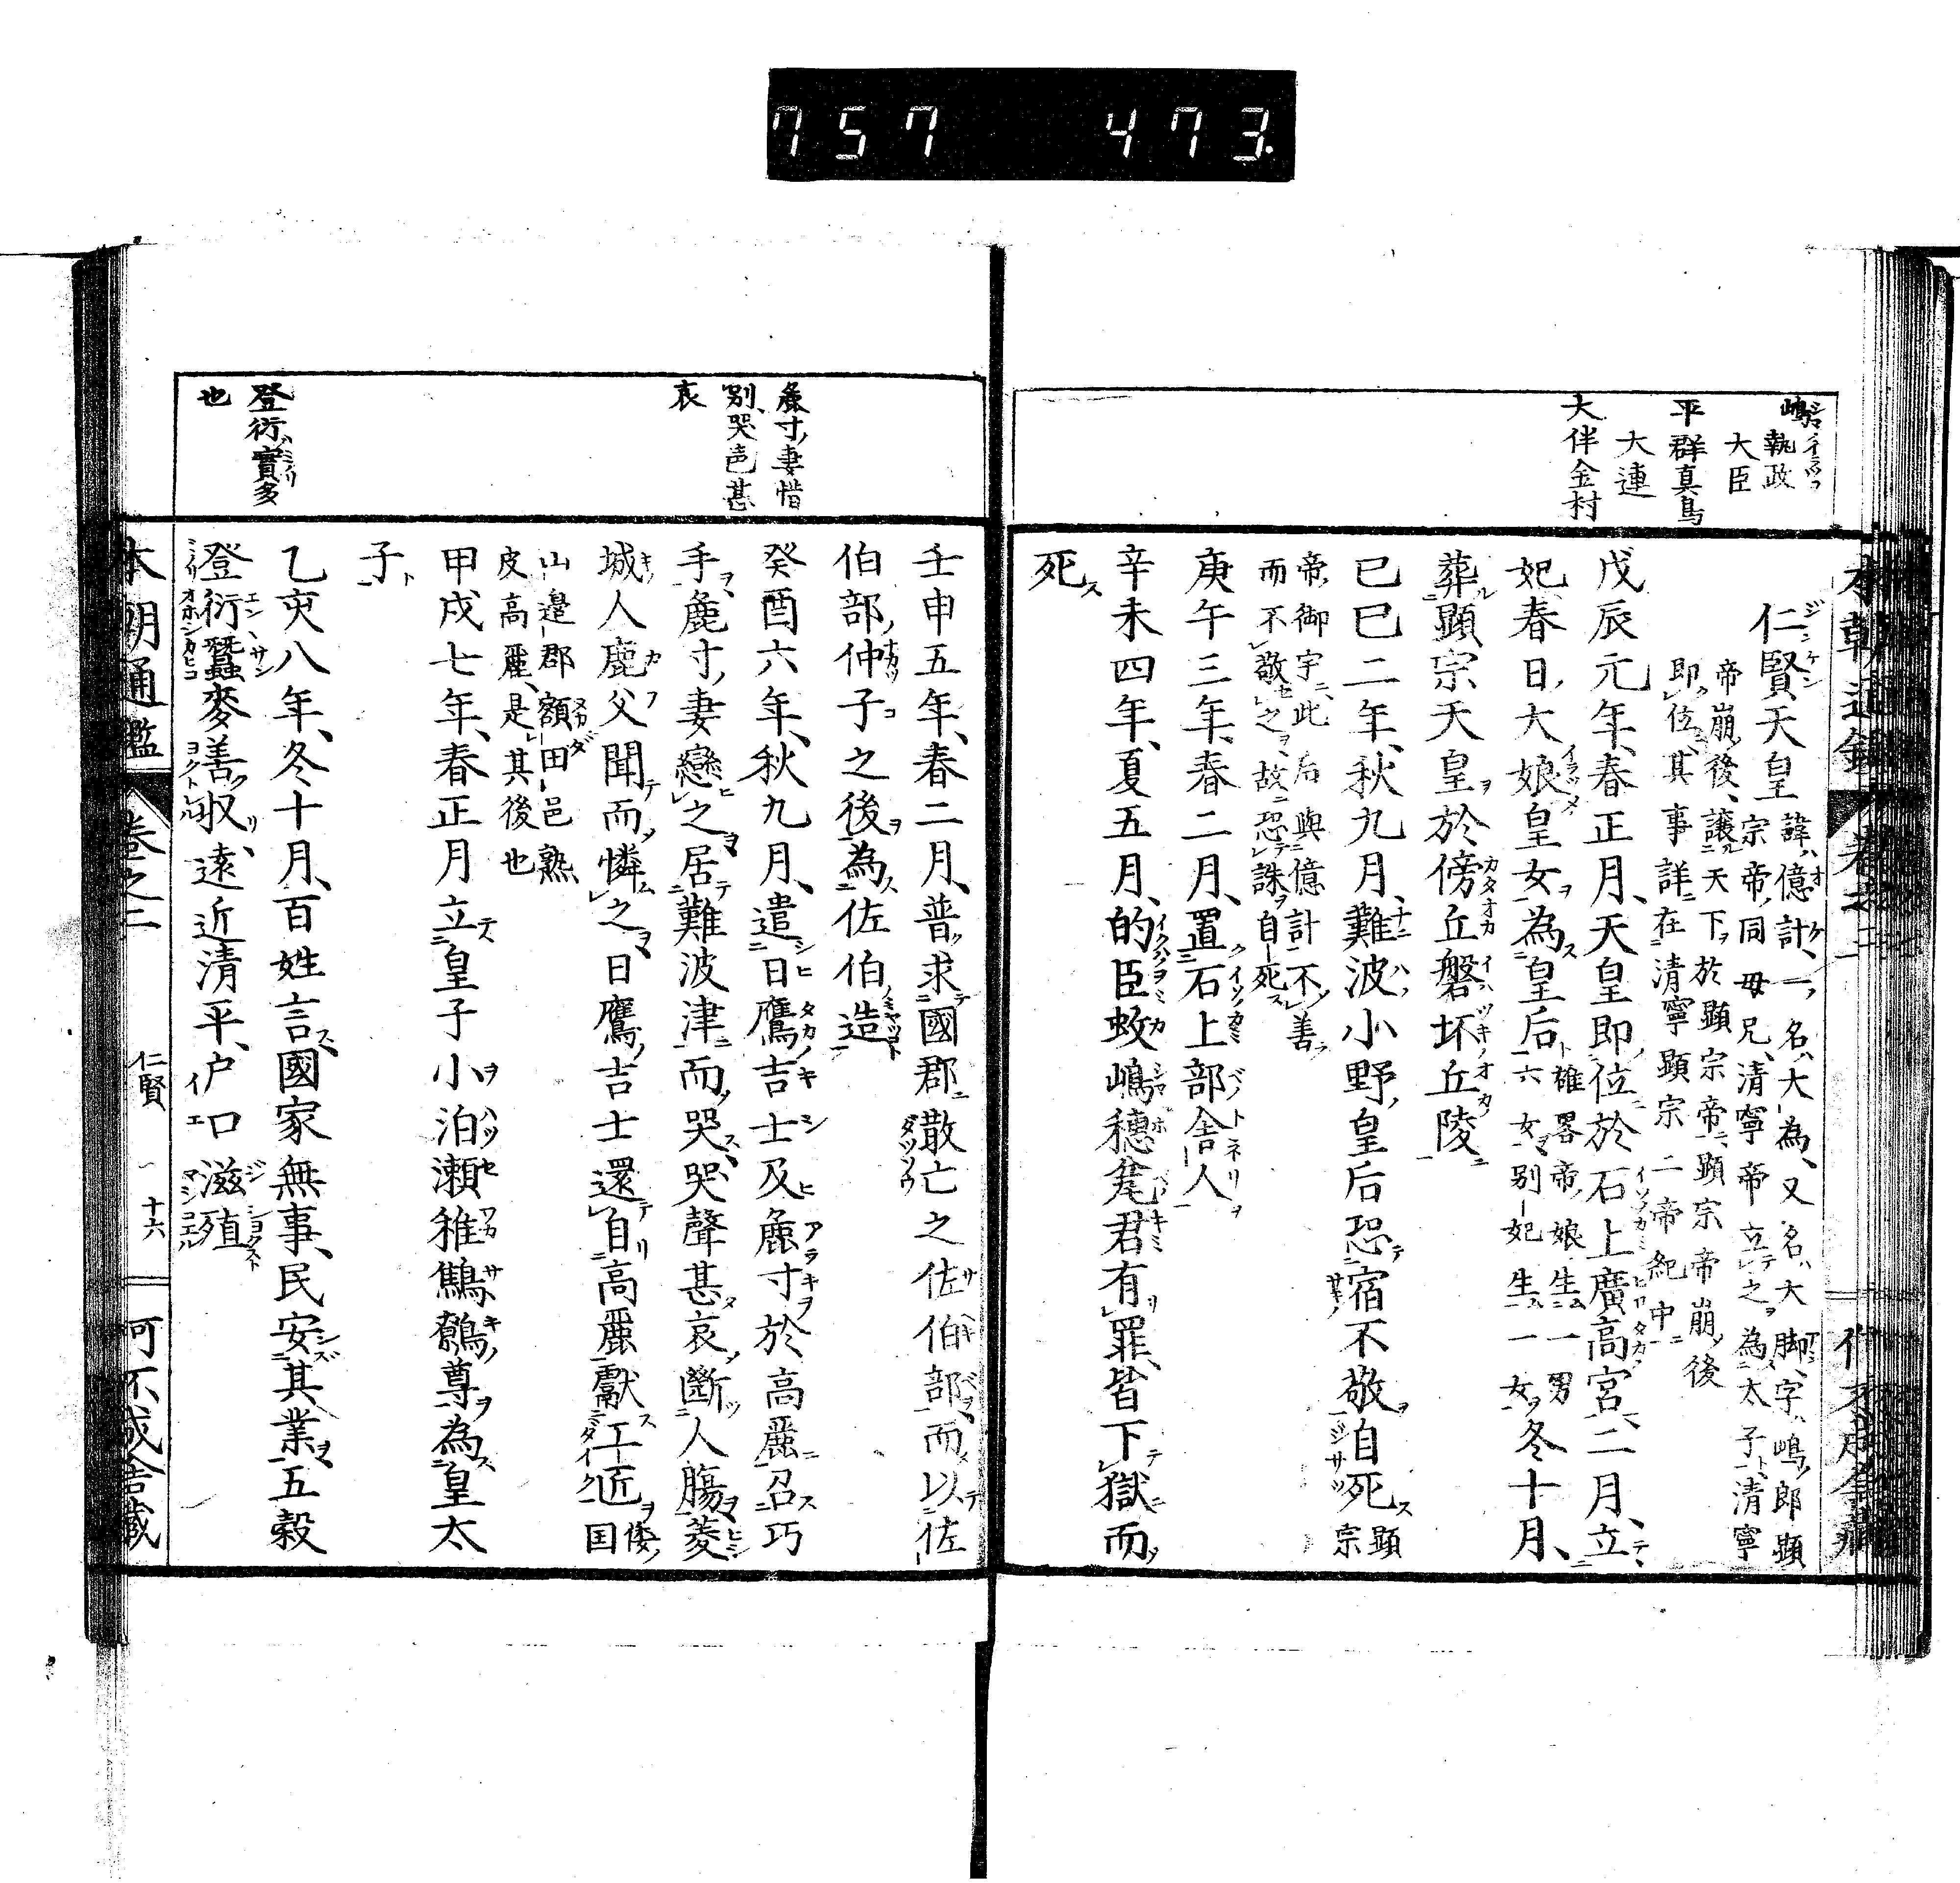 757 473.
嶋
執政
大臣
平群真鳥
大連
大伴金村
仁賢天皇 諱億計、一名大為、又名大脚、字嶋郎顕
宗帝同母兄、清寧帝立之為太子、清寧
帝崩後、譲天下於顕宗帝、顕宗帝崩後
即位、其事詳在清寧顕宗二帝紀中
戊辰元年、春正月、天皇即位於石上廣高宮、二月、立
妃春日大娘皇女為皇后 雄畧帝娘生一男
六女、別妃生一女 冬十月、
葬顕宗天皇於傍丘磐坏丘陵
己巳二年、秋九月、難波小野皇后恐宿不敬自死 顕
宗
帝御宇、此后與億計不善
而不敬之、故恐誅自死
庚午三年、春二月、置石上部舎人
辛未四年、夏五月、的臣蚊嶋穗瓮君有罪、皆下獄而
死
麁寸妻惜
別、哭声甚
哀
登衍實多
也
壬申五年、春二月、普求國郡散亡之佐伯部、而以佐
伯部仲子之後為佐伯造
癸酉六年、秋九月、遣日鷹吉士及麁寸於高麗召巧
手、麁寸妻戀之居難波津而哭、哭聲甚哀断人腸菱
城人鹿父聞而憐之日鷹吉士還自高麗獻工匠 倭国
山邊郡額田邑熟
皮高麗、是其後也
甲戌七年、春正月立皇子小泊瀬稚鷦鷯尊為皇太
子
乙亥八年、冬十月、百姓言、國家無事、民安其業、五穀
登衍蠶麥善収、遠近清平、户口滋殖
本朝通鑑 巻之二 仁賢 十六 可不成舎藏